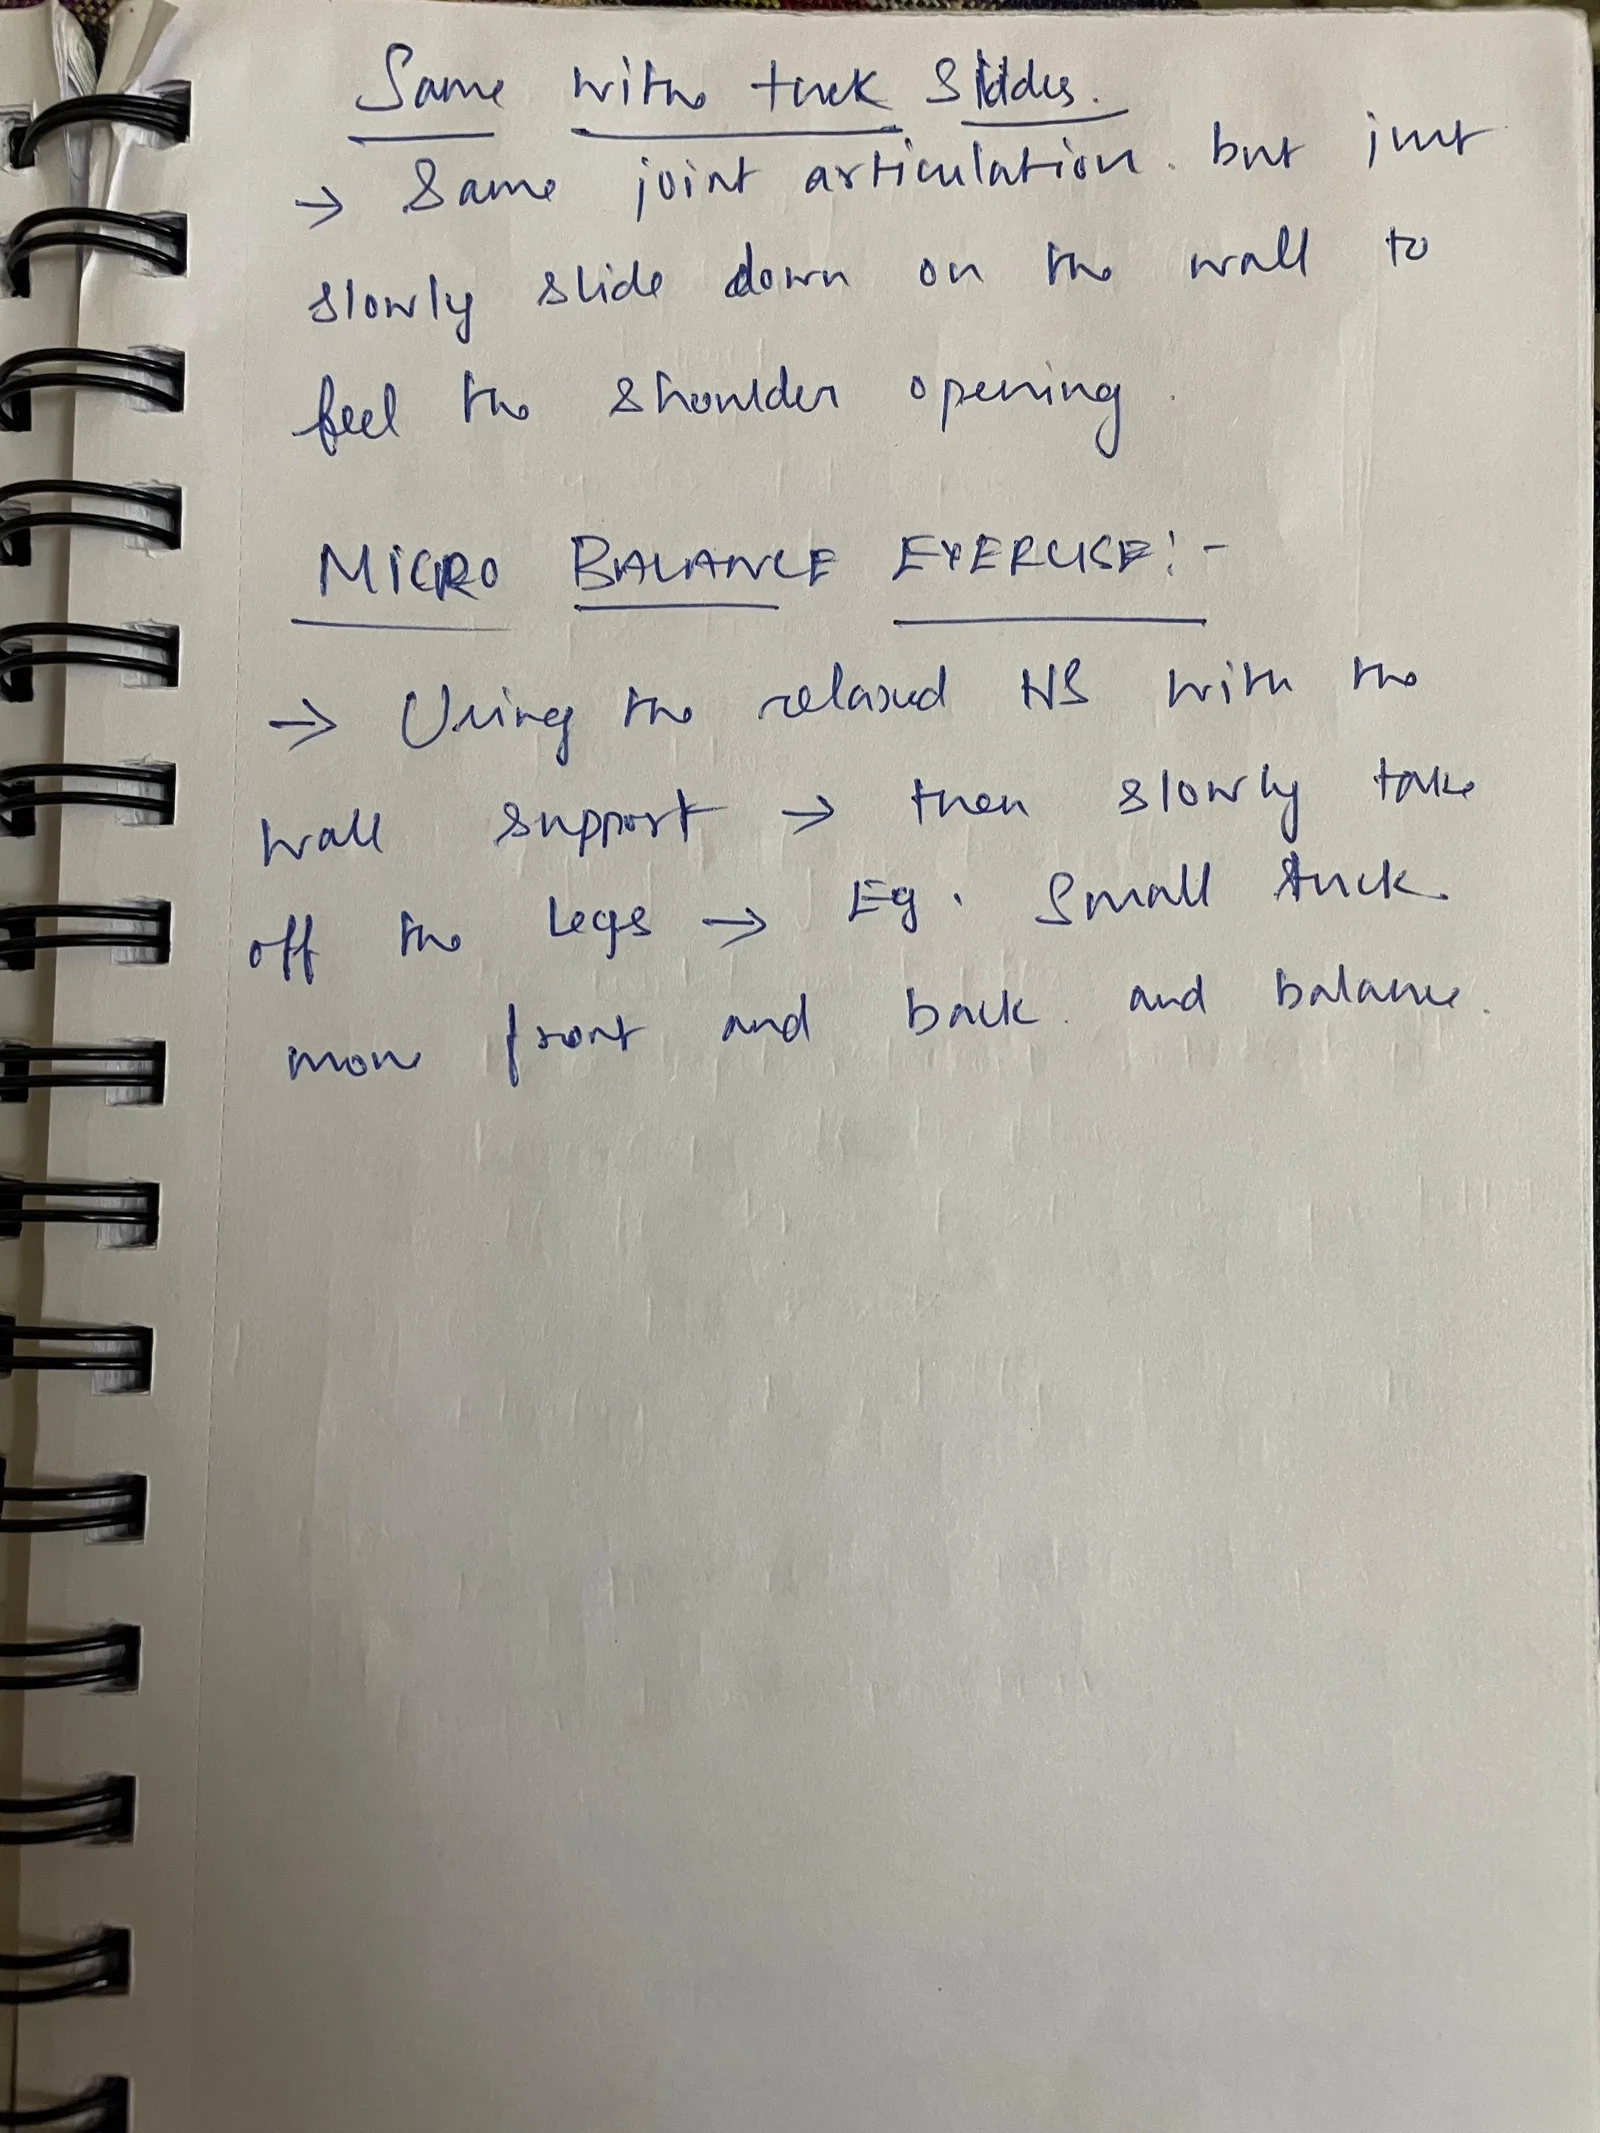 Same with tuck Slides.
→ Same joint articulation. but just
slowly slide down on the wall to
feel the shoulder opening.
MICRO BALANCE EXERCISE:-
→ Using the relaxed HS with the
wall support → then slowly take
off the legs → Eg. Small tuck
move front and back. and balance.